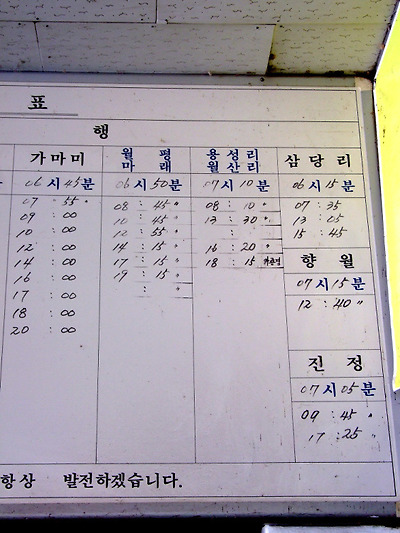 표
행
가마미
06시 45분
07 55 〃
09 : 00
10 : 00
12 : 00
14 : 00
16 : 00
17 : 00
18 : 00
20 : 00
월 평
마 래
06시 50분
08 : 45 〃
10 : 45 〃
12 : 55 〃
14 : 15 〃
17 : 15 〃
19 : 15 〃
: 〃
용성리
월산리
07시 10분
08 : 10 〃
13 : 30 〃
:
16 : 20 〃
18 : 15
삼당리
06시 15분
07 : 35
13 : 05
15 : 45
향 월
07시 15분
12 : 40 〃
진 정
07시 05분
09 : 45 〃
17 : 25 〃
항상 발전하겠습니다.